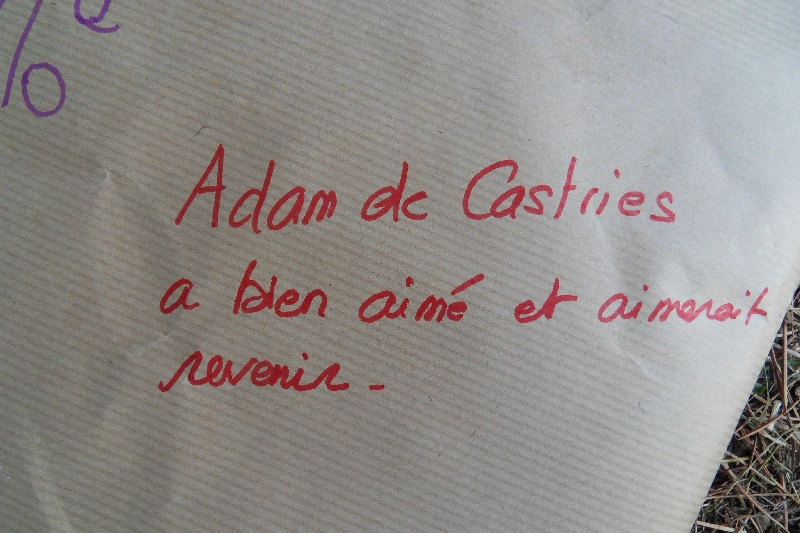 Adam de Castries
a bien aimé et aimerait
revenir.